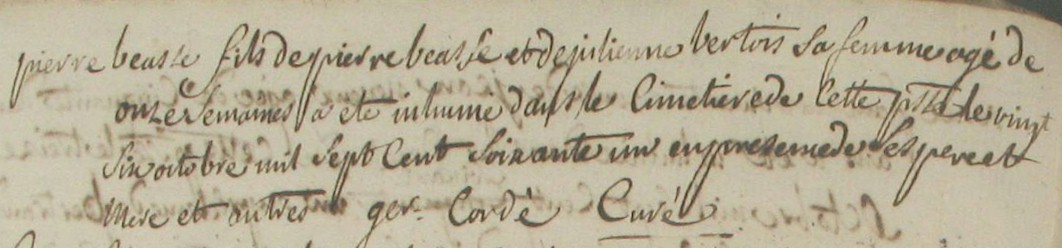 pierre beasse fils de pierre beasse et de julienne bertois sa femme agé de
onze semaines a eté inhumé dans le Cimetiere de Cette psse le vingt
six octobre mil sept Cent soixante un en presence de Ses pere et
mere et autres ger. Cordé Curé